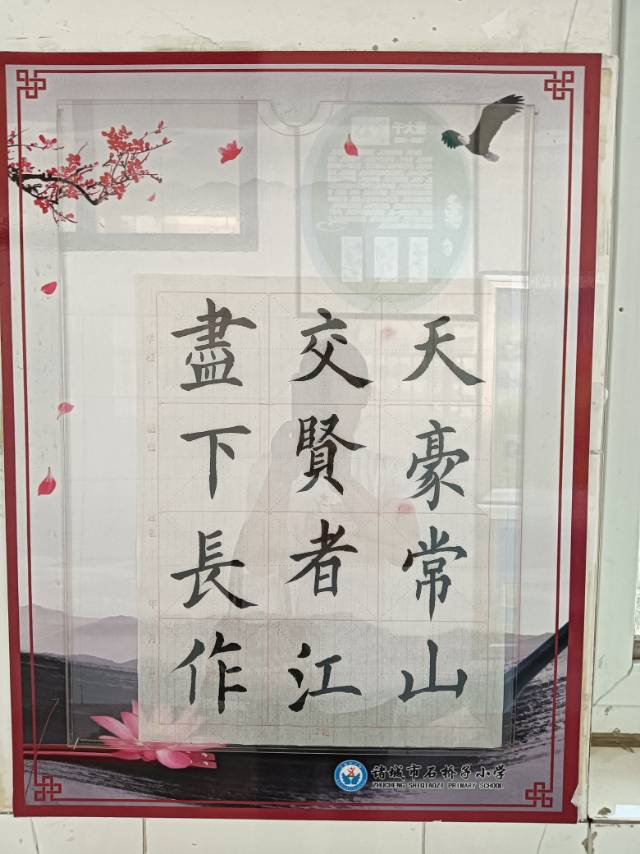 天豪常山
交賢者江
盡下長作
诸城市石桥子小学
ZHUCHENG SHIQIAOZI PRIMARY SCHOOL